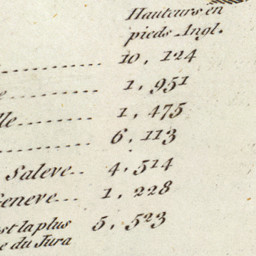 Hauteurs en
pieds Angl.
10,124
e 1,951
lle 1,475
6,113
Saleve 4,514
Geneve 1,228
est la plus 5,523
e du Jura